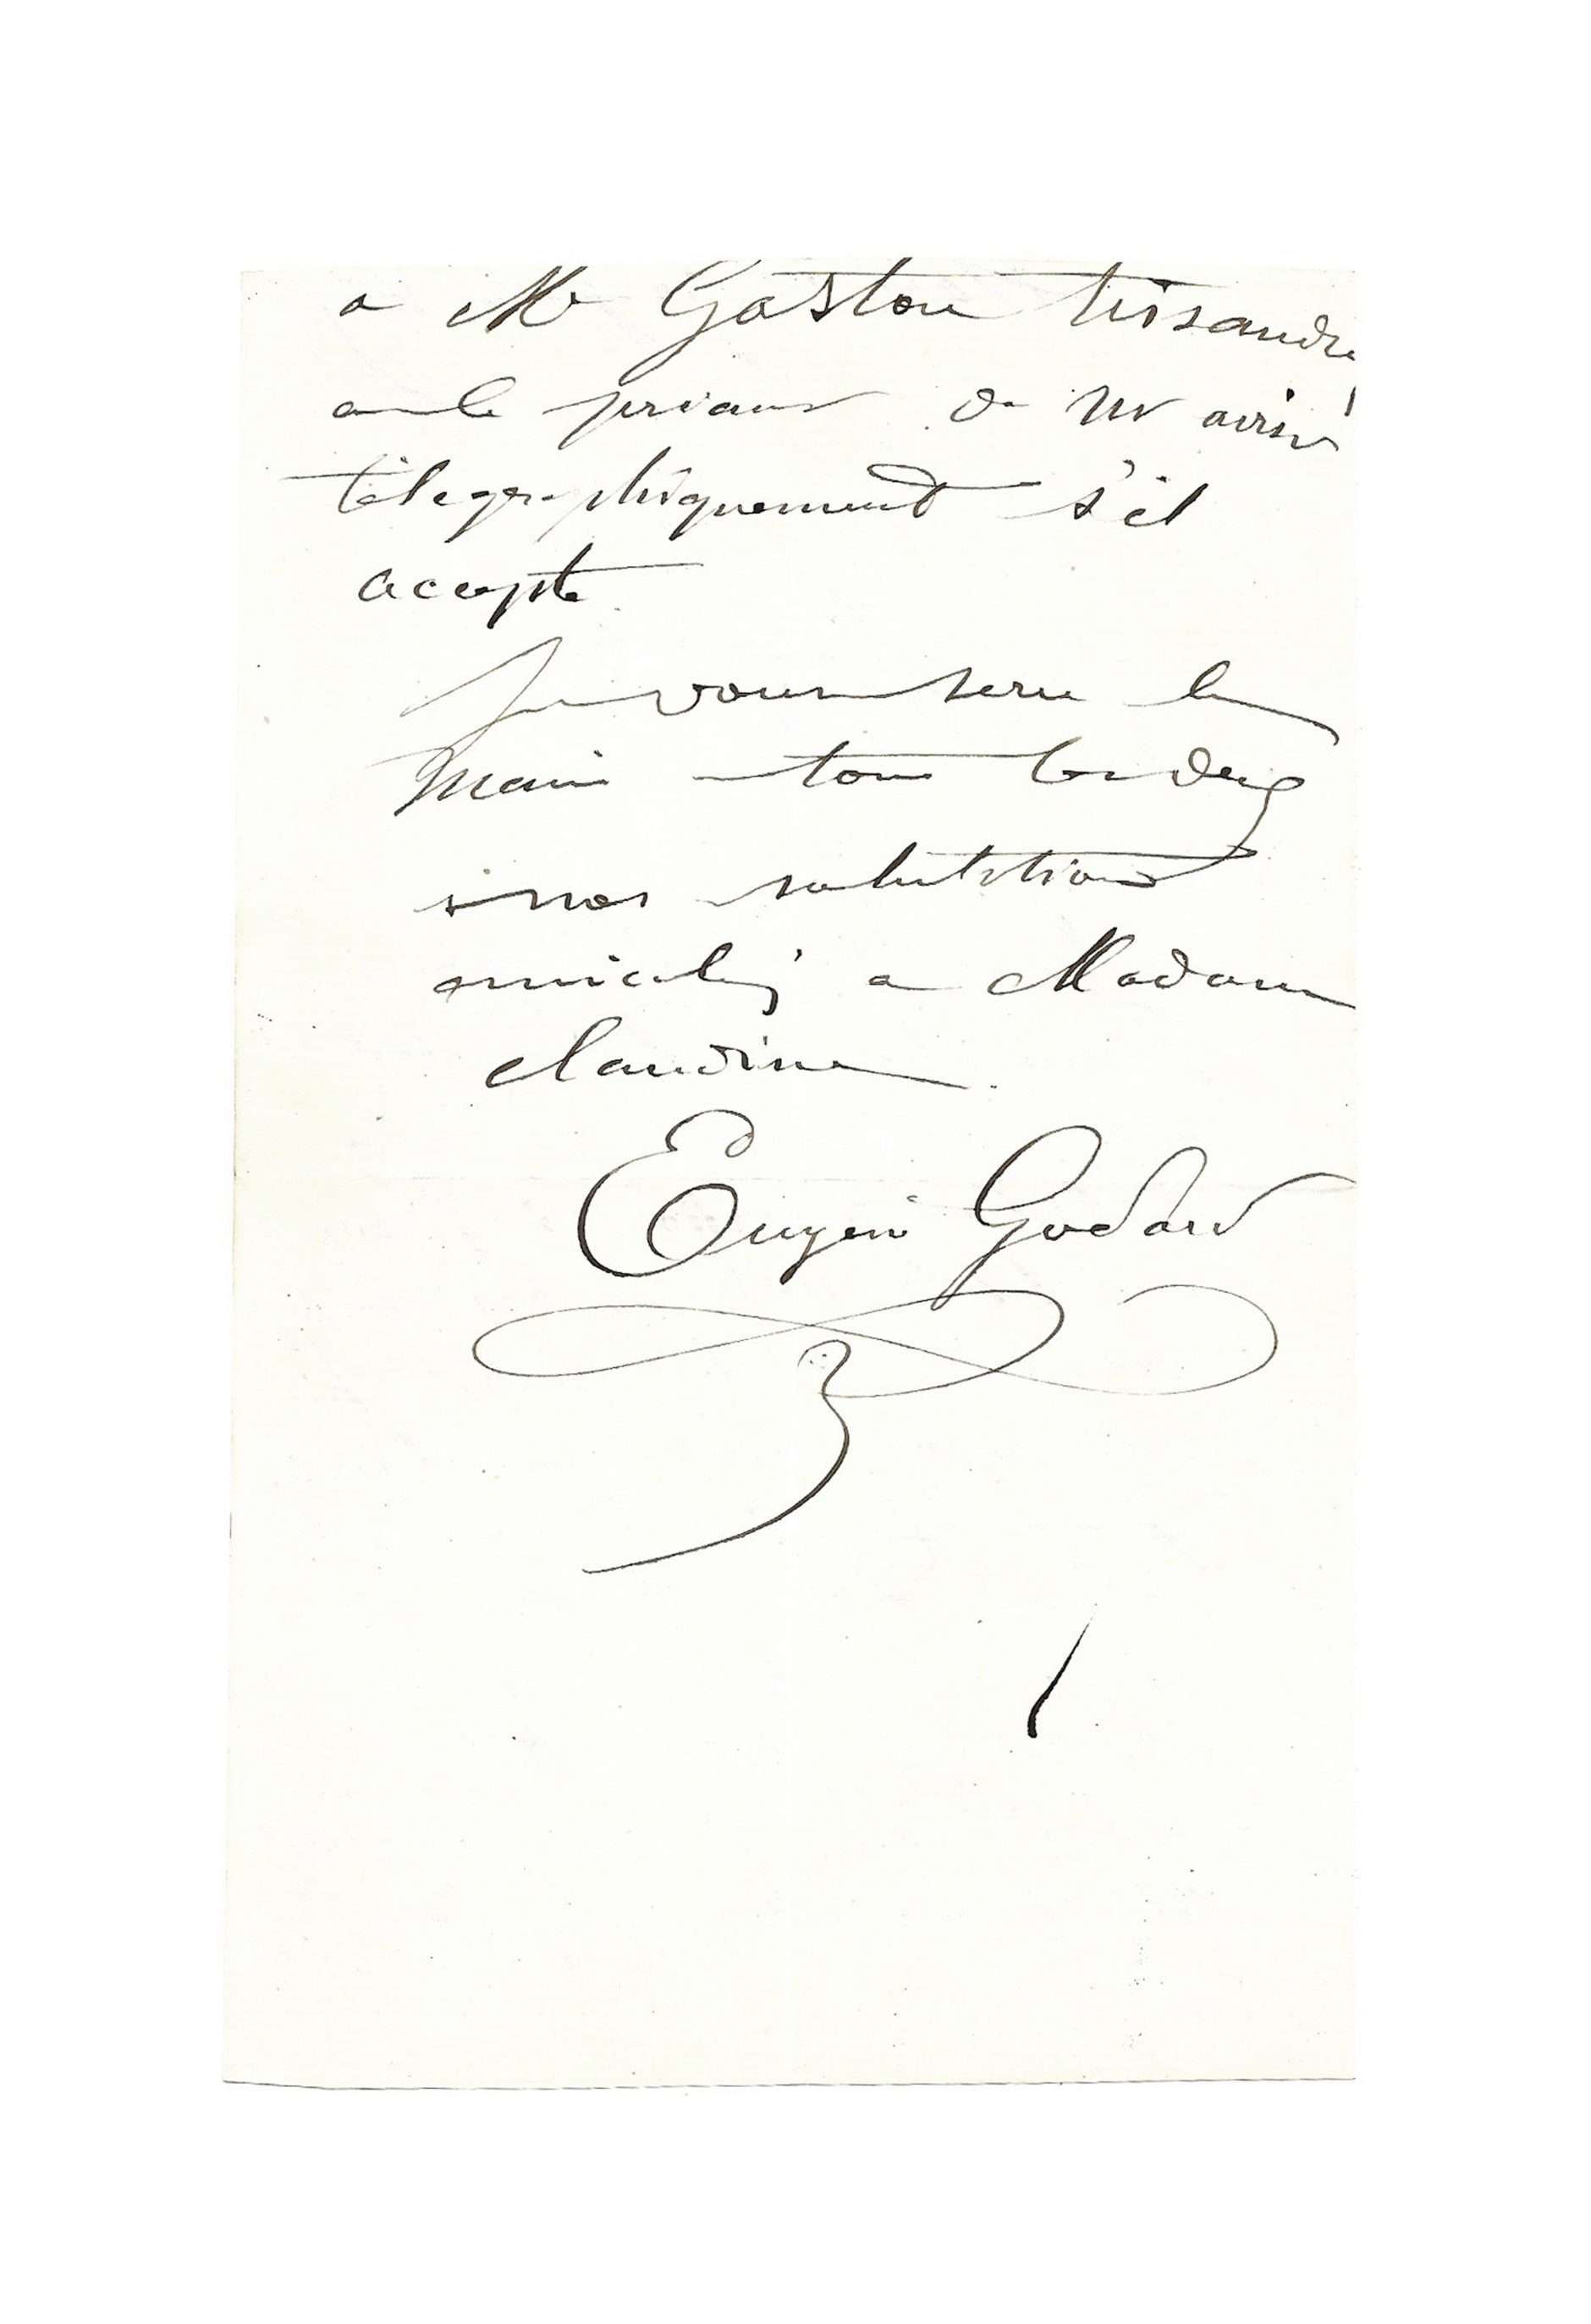 a Mr Gaston tissandie
en le priant de m'aviser
télégraphiquement s'il
accepte
Je vous serre la
main a tous les deux
nos salutations
amicales a Madame
claudine
Eugène Godard